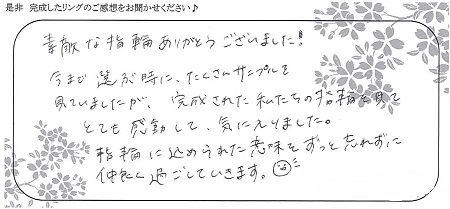 是非 完成したリングのご感想をお聞かせください♪
素敵な指輪ありがとうございました!
今まで選ぶ時に、たくさんサンプルを
見ていましたが、完成された私たちの指輪を見て
とても感動して、気に入りました。
指輪に込められた意味をずっと忘れずに
仲良く過ごしていきます。